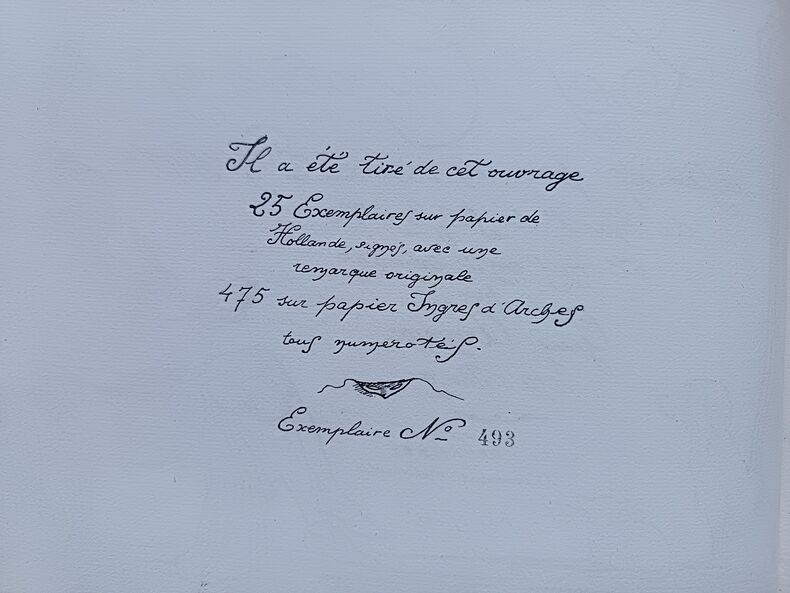 Il a été tiré de cet ouvrage
25 Exemplaires sur papier de
Hollande, signés, avec une
remarque originale
475 sur papier Ingres d'Arches
tous numérotés.
Exemplaire No 493